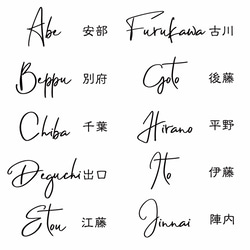 Abe 安部 Furukawa 古川
Beppu 別府 Goto 後藤
Chiba 千葉 Hirano 平野
Deguchi 出口 Ito 伊藤
Etou 江藤 Jinnai 陣内